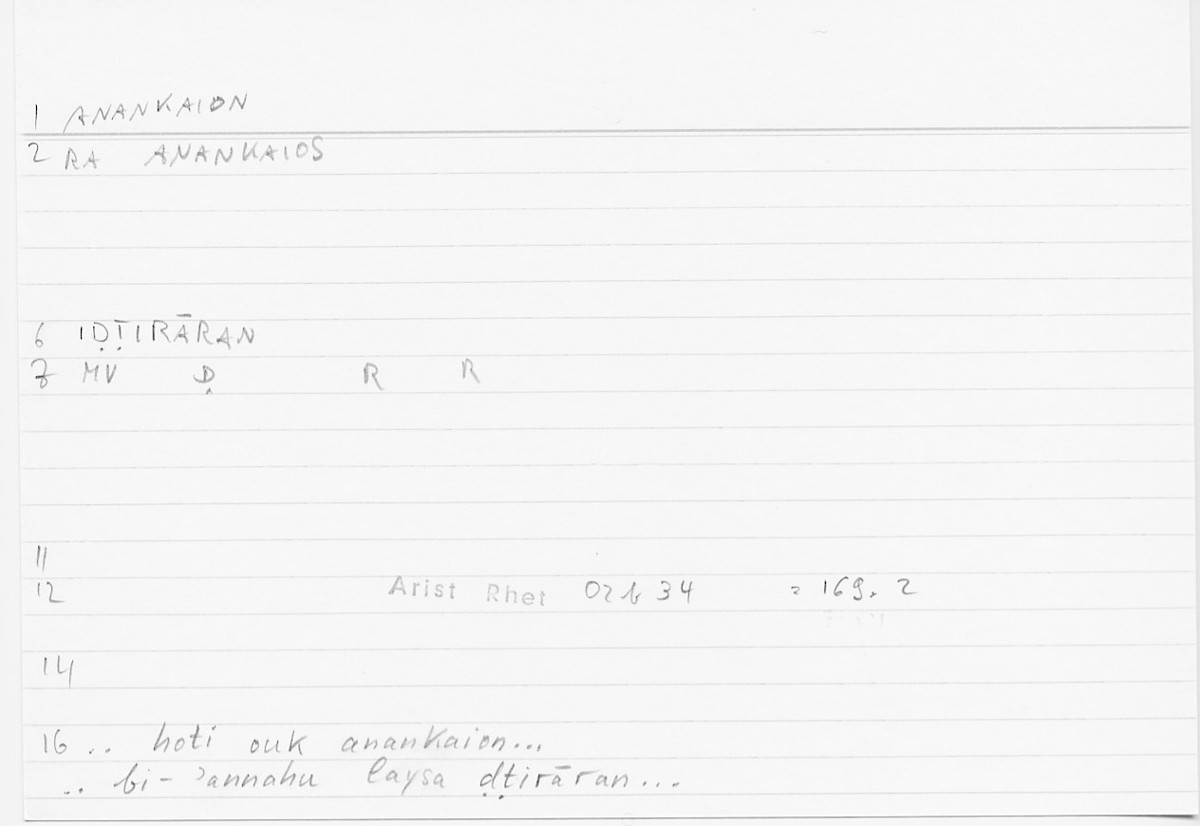 1 ANANKAION
2 RA ANANKAIOS
6 IḌṬIRĀRAN
7 MV Ḍ R R
11
12 Arist Rhet 02b 34 = 169. 2
14
16 .. hoti ouk anankaion...
.. bi-ʾannahu laysa ḍṭirāran...